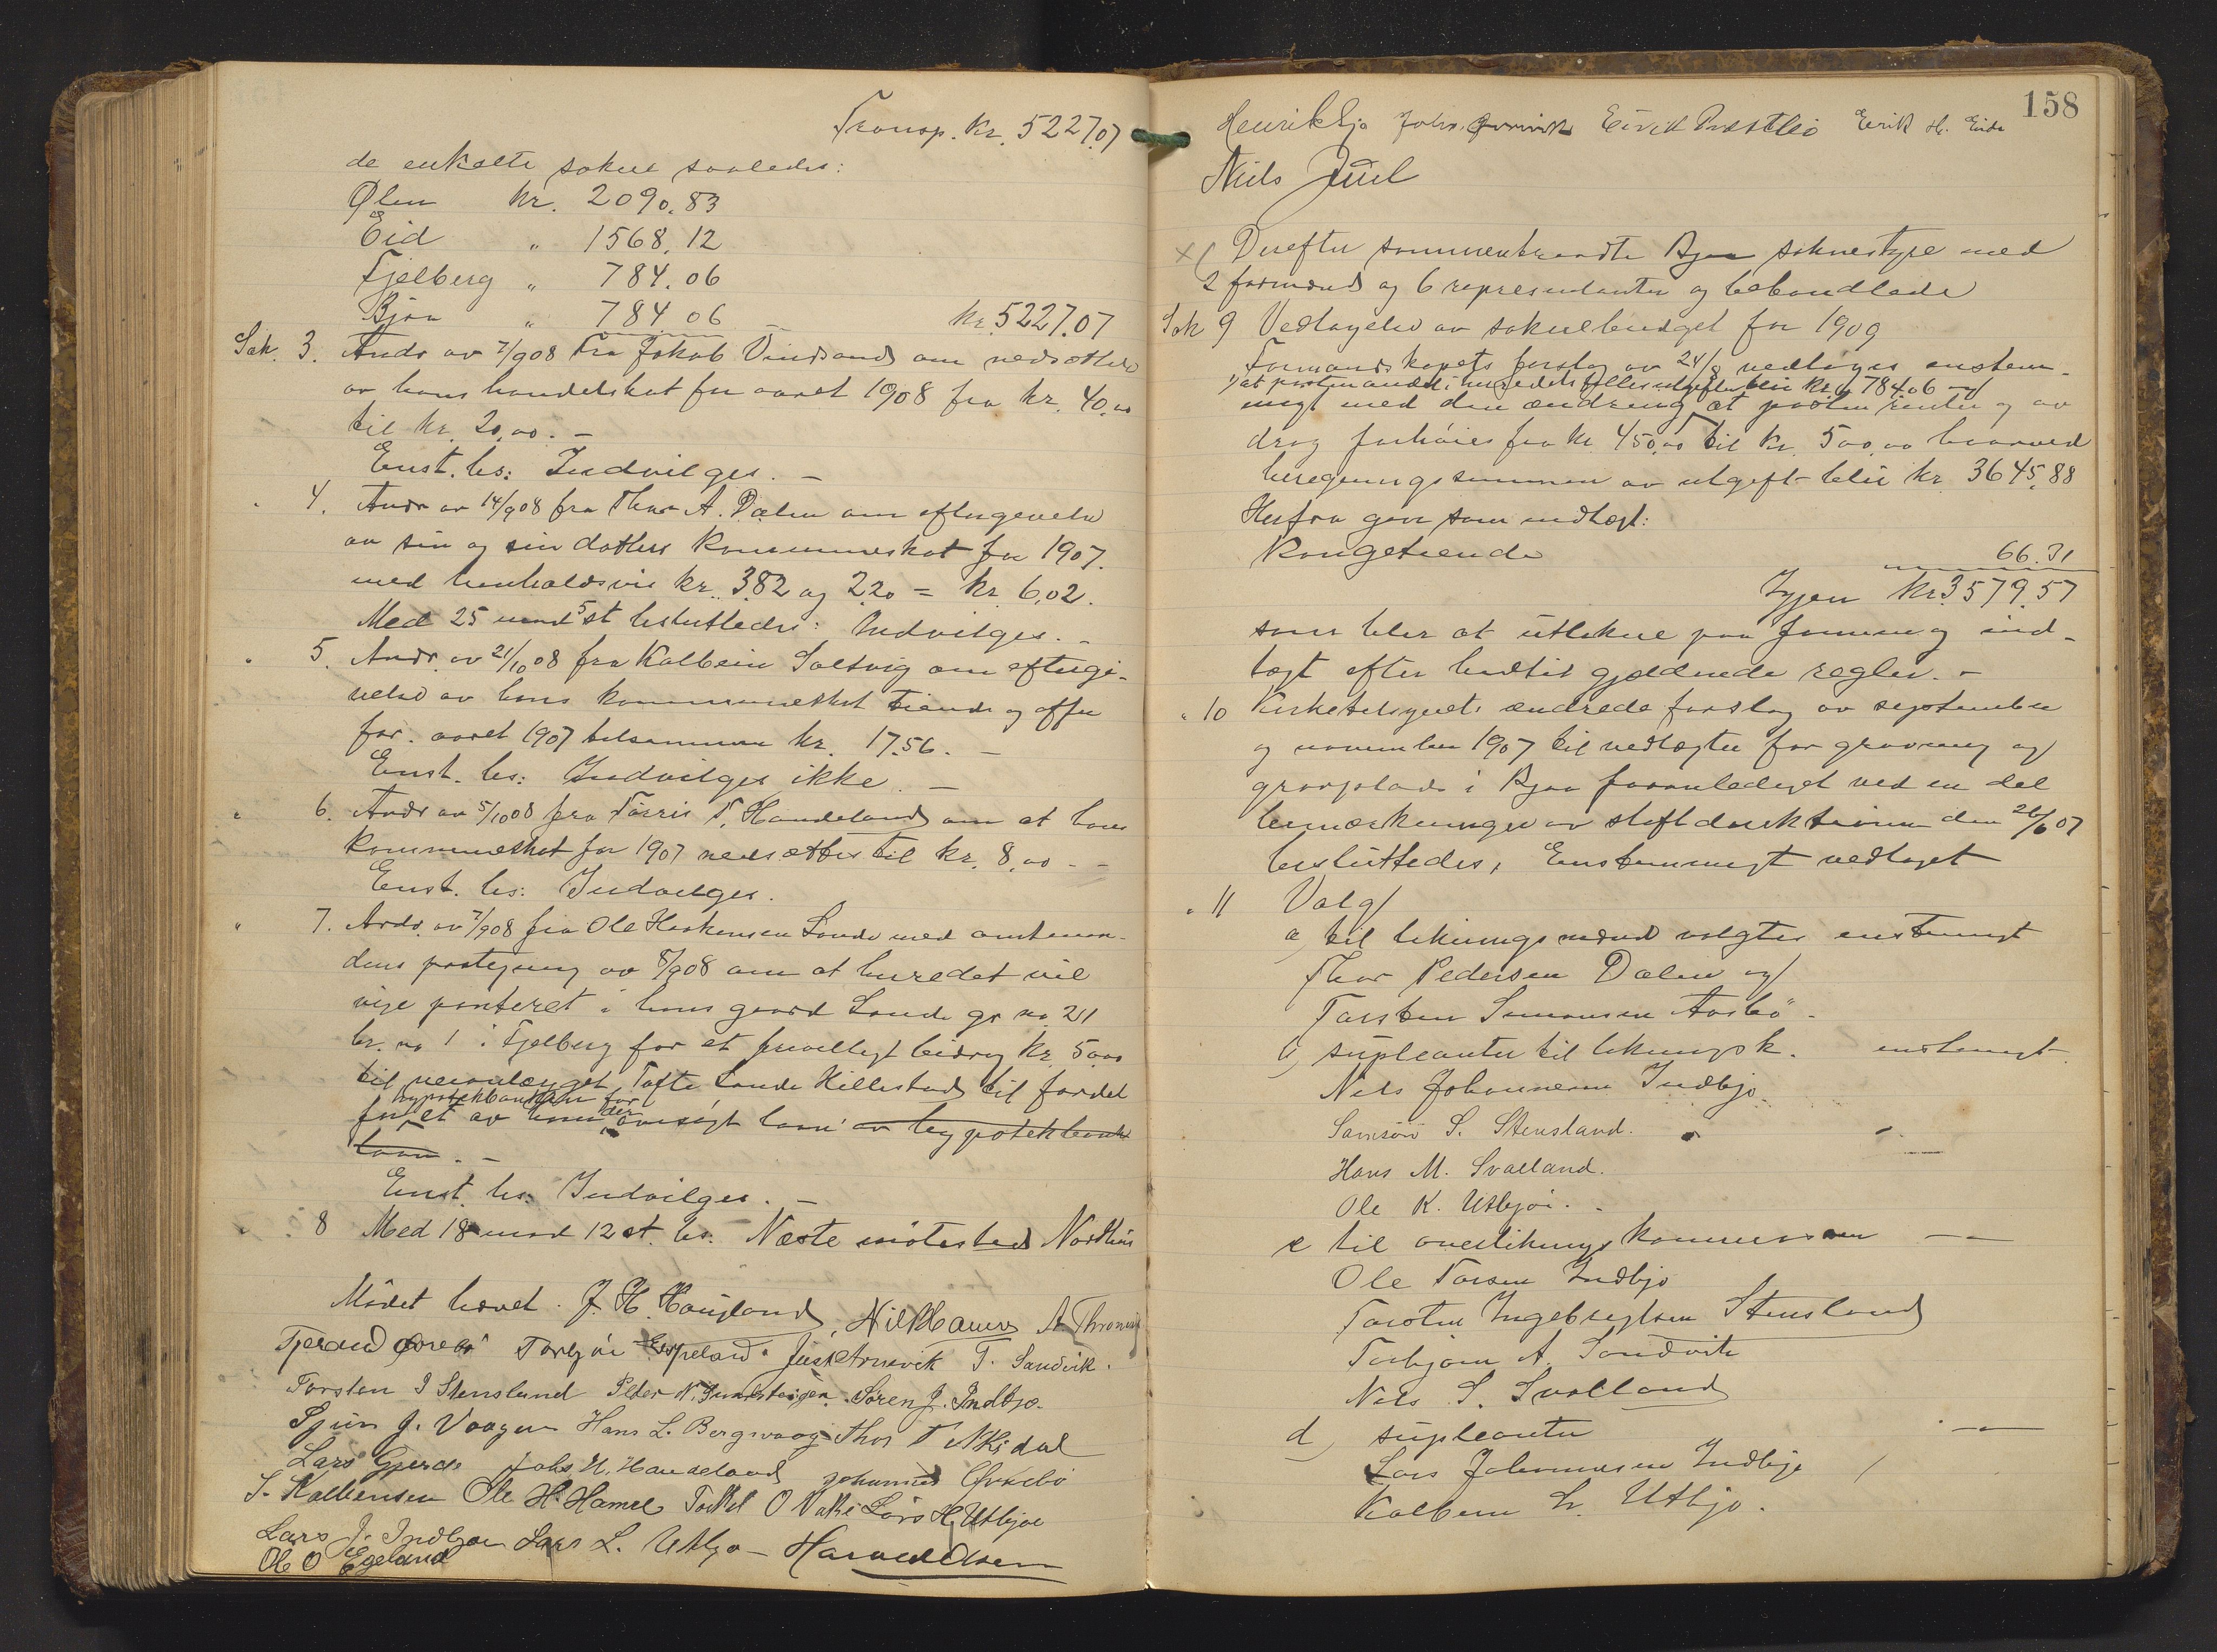 Transp. Kr. 5227.07
de enkelte sokne saaledes:
Ølen Kr. 2090.83
Eid " 1568.12
Fjelberg " 784.06
Bjoa " 784 06 – kr. 5227.07
Sak. 3. Andr av 7/908 fra Jakob Vindsand om nedsættelse
av hans handelskat for aaret 1908 fra kr. 40.00
til kr. 20,00. –
Enst. bs: Indvilges. –
" 4. Andr av 14/908 fra Thor A. Dalen om eftergivelse
av sin og sin datters kommuneskat for 1907.
med henholdsvis kr. 3.82 og 2.20 = kr. 6.02.
Med 25 mod 5 st besluttedes: Indvilges. –
" 5. Andr. av 21/10 08 fra Kolbein Saltvig om eftergi-
velse av hans kommuneskat tiende og offer
for aaret 1907 tilsammen kr. 17.56. –
Enst. bs: Indvilges ikke. –
" 6. Andr av 5/1008 fra Tørris T. Handeland om at hans
kommuneskat for 1907 nedsættes til kr. 8.00 –
Enst. bs: Indvilges.
" 7. Andr. av 7/908 fra Ole Haakensen Sande med amtman-
dens paategning av 8/908 om at heredet vil
vige panteret i hans gaard Sande gr no 21
br. no 1 i Fjelberg for et frivilligt bidrag kr. 50.00
til veianlægget Tofte Sande Hillestad til fordel
hypotekbanken for
for et av ham der ansøgt laan av hypotekbank
laan. –
Enst. bs: Indvilges. –
" 8 Med 18 mod 12 st. bs. Næste møtested Nordhus
Mødet hævet. J. H. Haugland, Nil Hamre A. Thronsen
Tjerand Torbjør Espeland Just Arnevik T. Sandvik.
Torsten I Stensland Peder N. Søren J. Indbjo.
J. Vaagen Hans L. Bergsvaag Thor T Mkidal
Lars Gjerde Johs H. Handeland Johannes Ørnebø
S. Kolbensen Ole H. Hamre Torkel O Vatne Lars H. Utbjoe
Lars J. Indbjoe Lars L. Utbjo – Harald Olsen
Ole O Egeland
158
Henrik Ejo Johs. Eivik Eirik H. Eide
Niels Juul
x Derefter sammentraadte Bjoa soknestyre med
2 formænd og 6 representanter og behandlede
Sak 9 Vedtagelse av soknebudget for 1909
Formandskapets forslag av 24/8 vedtages enstem-
1) at posten andel i heredets fællesutgifter blir kr. 784.06 og
migt med den ændring at posten renter og av
drag forhøies fra kr. 450,00 til kr. 500,00 hvorved
beregningssummen av utgift blir kr. 3645.88
Herfra gaar som indtægt:
Kongetiende 66.31
Igjen kr. 3579.57
som blir at utlikne paa formue og ind-
tægt efter hertil gjældende regler. –
" 10 Kirketilsynets ændrede forslag av september
og november 1907 til vedtægter for gravning og
gravplads i Bjoa foranlediget ved en del
bemærkninger av stiftdirektionen den 26/6 07
besluttedes, Enstemmigt vedtaget
" 11 Valg
a) til likningsmænd valgtes enstemmigt
Thor Pedersen Dalen og
Torsten Simonsen Aasbø –
b) supleanter til likningsk. enstemmigt
Nils Johannesen Indbjo
Samson S. Stensland. "
Hans M. Svalland.
Ole K. Utbjoe. –
c til overlikningskommissionen — —
Ole Torsen Indbjo
Torsten Ingebregtsen Stensland
Torbjørn A. Sandvik
Nils S. Svalland
d) supleanter — —
Lars Johannesen Indbjo
Kolben L. Utbjo.